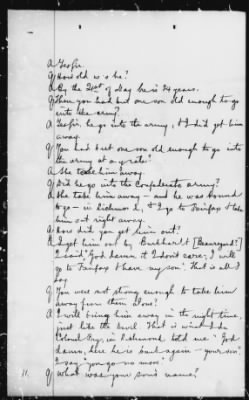 A Yes sir.
Q How old was he?
A By the 21st of May he is 24 years.
Q Then you had but one son old enough to go
into the army?
A Yes sir, he go into the army, & I did get him
away.
Q You had but one son old enough to go into
the army at any rate?
A She take him away.
Q Did he go into the Confederate army?
A She take him away - and he was bound
to go - in Richmond, & I go to Fairfax & take
him out right away.
Q How did you get him out?
A I get him out by Burkhardt [Beauregard?]
I said "God damn it I don't care; I will
go to Fairfax & have my son". That is all I
say.
Q You were not strong enough to take him
away from them alone?
A I will bring him away in the night time,
just like the devil. That is what I do
Colonel in Richmond told me "God
damn, here he is back again - your son.
I say you go no more."
11. Q What was your son's name?